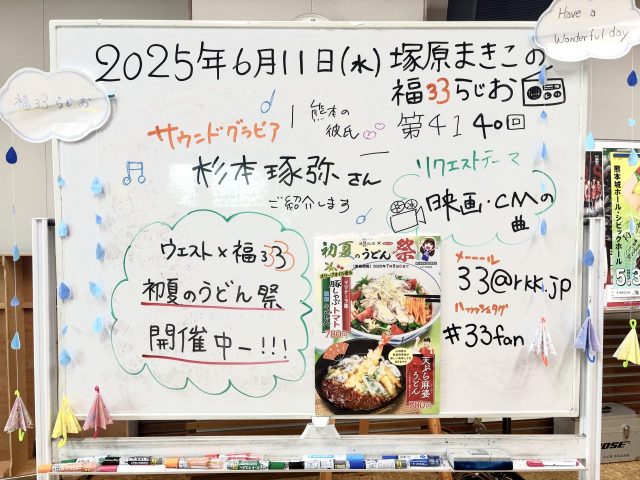 Have a
Wonderful day
福33らじお
2025年6月11日(水)塚原まきこの
福33らじお
第4140回
サウンドグラビア
熊本の
彼氏
杉本琢弥さん
ご紹介します
リクエストテーマ
映画・CMの
曲
ウエスト×福33
初夏のうどん祭
開催中ー!!!
初夏のうどん祭
豚しゃぶトマト
780円
天ぷら麻婆
うどん
780円
メーーール
33@rkk.jp
ハッシュタグ
#33fan
熊本城ホール・シビックホール
5.3
BOSE